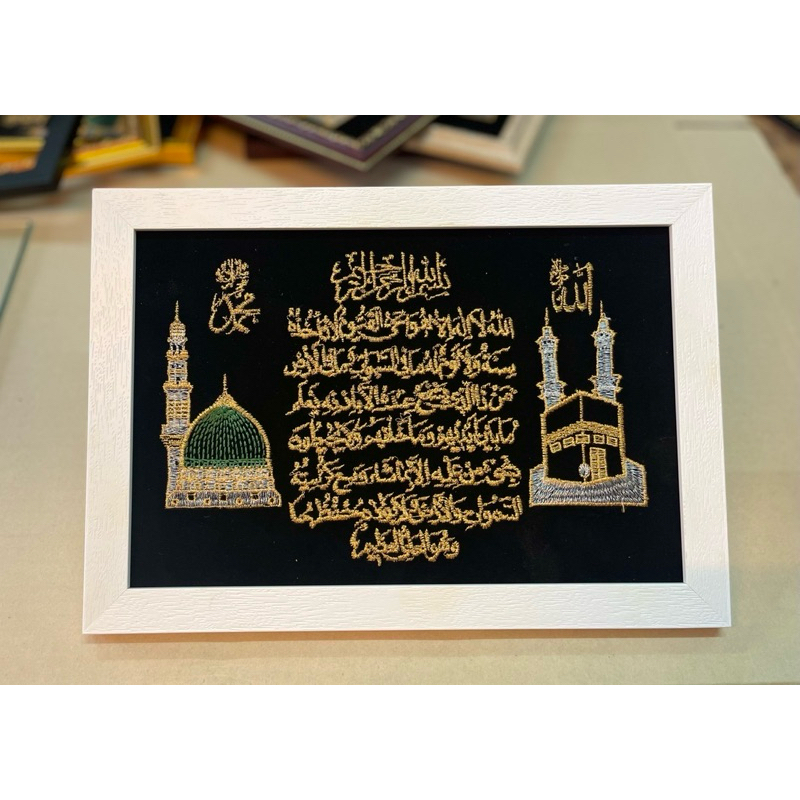 محمد
الله
بسم الله الرحمن الرحيم
الله لا إله إلا هو الحي القيوم لا تأخذه
سنة ولا نوم له ما في السموات وما في الأرض
من ذا الذي يشفع عنده إلا بإذنه يعلم
ما بين أيديهم وما خلفهم ولا يحيطون
بشيء من علمه إلا بما شاء وسع كرسيه
السموات والأرض ولا يؤده حفظهما
وهو العلي العظيم